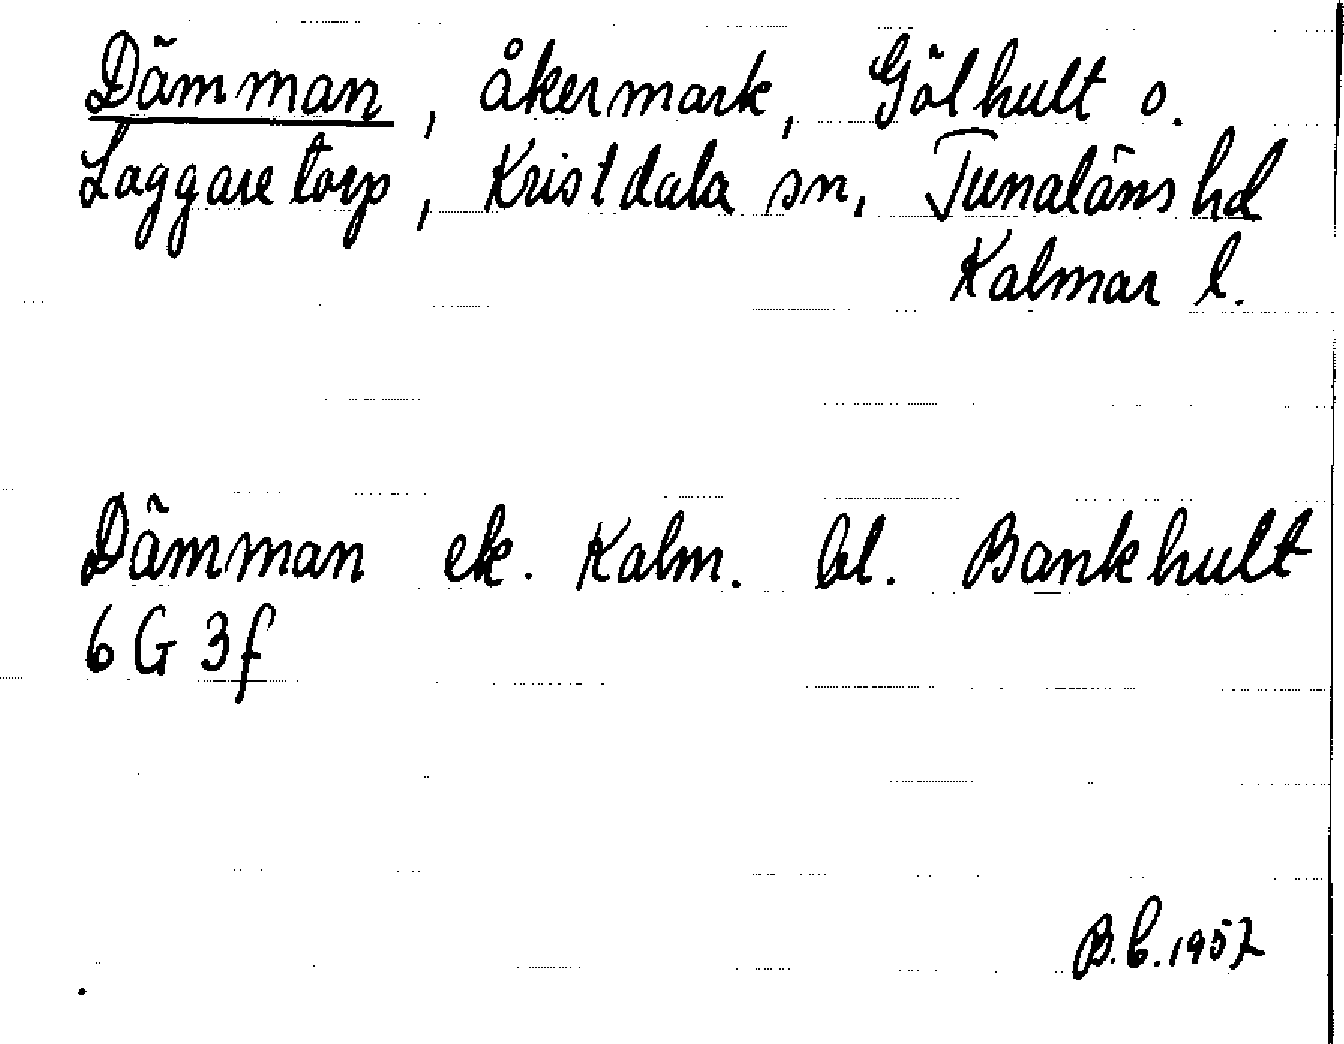 Dämman, åkermark, Gölhult o.
Laggaretorp, Kristdala sn, Tunaläns hd
Kalmar l.
Dämman ek. Kalm. bl. Bankhult
6 G 3f
B.b.1957